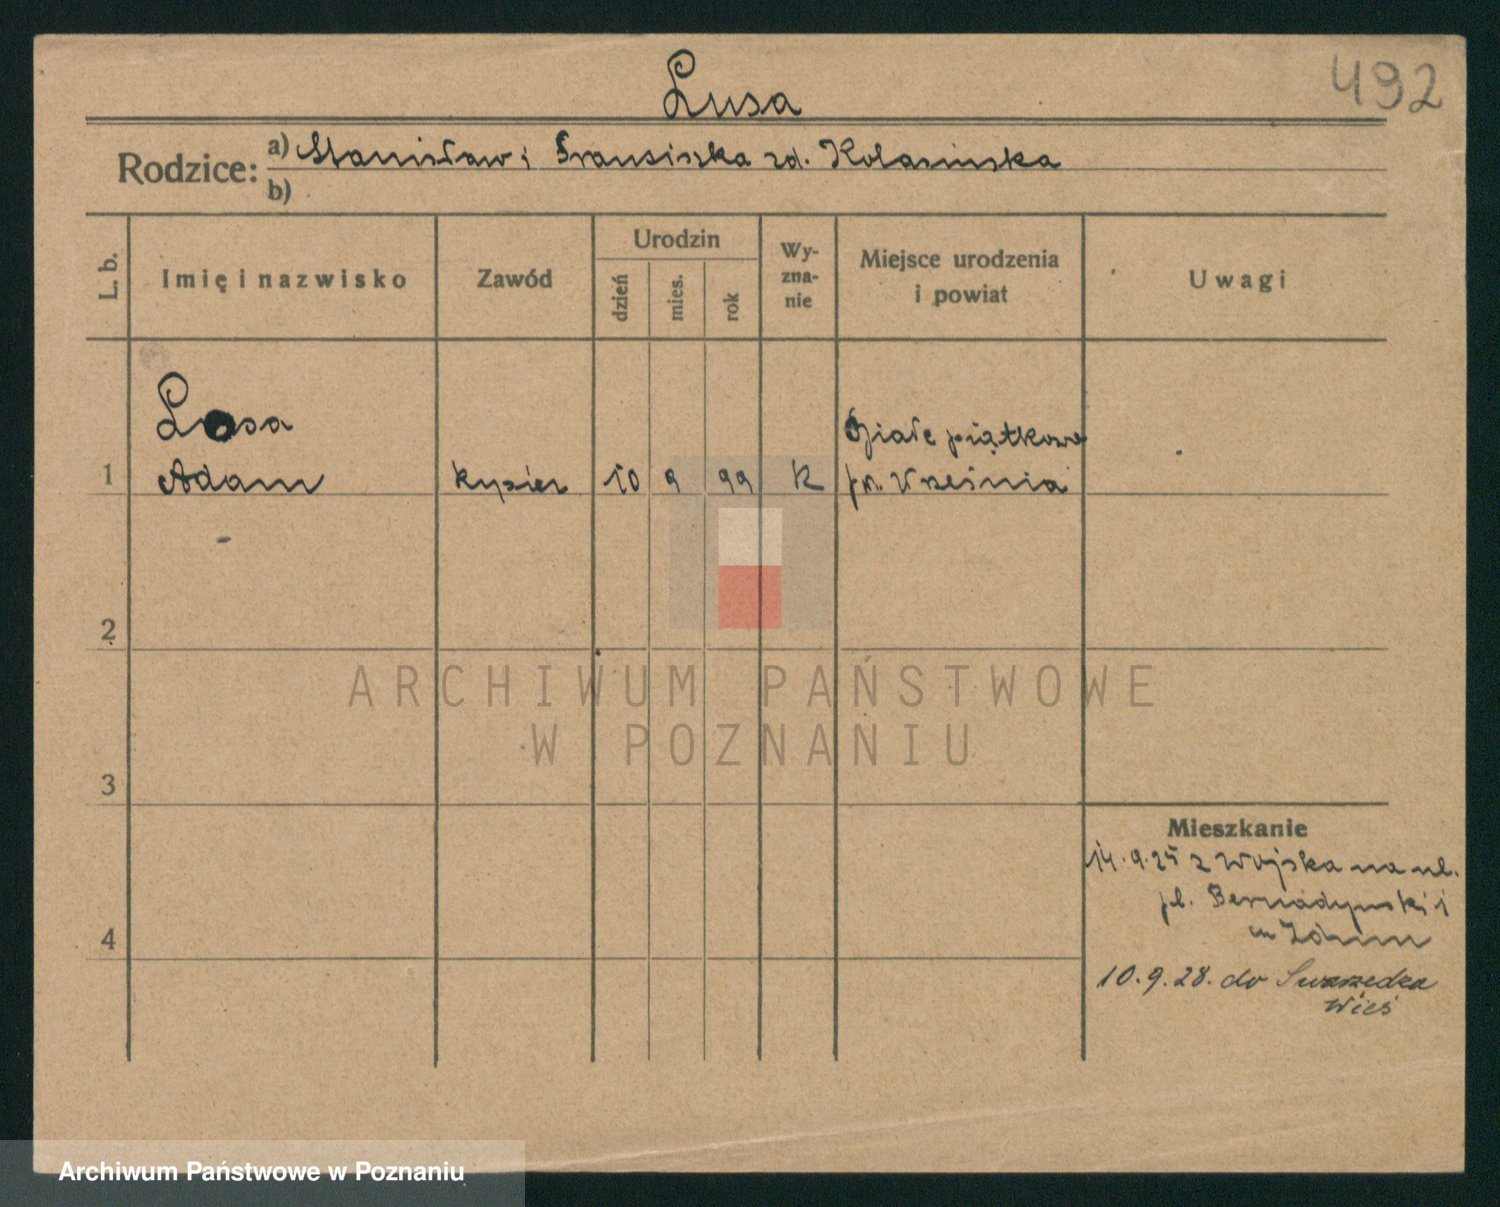 492
Lusa
Rodzice: a) Stanisław i Fransiszka zd. Kolasinska
b)
L. b.
Imię i nazwisko
Zawód
Urodzin
dzień
mies.
rok
Wy-
zna-
nie
Miejsce urodzenia
i powiat
Uwagi
Lusa
Białe piątkowo
1 Adam kupiec 10 9 99 K pow. Września
2
ARCHIWUM PAŃSTWOWE
W POZNANIU
3
Mieszkanie
14.9.25 z Wojska na ul.
pl. Bernadynski i
10.9.28. do Swarzędza
Wieś
4
Archiwum Państwowe w Poznaniu